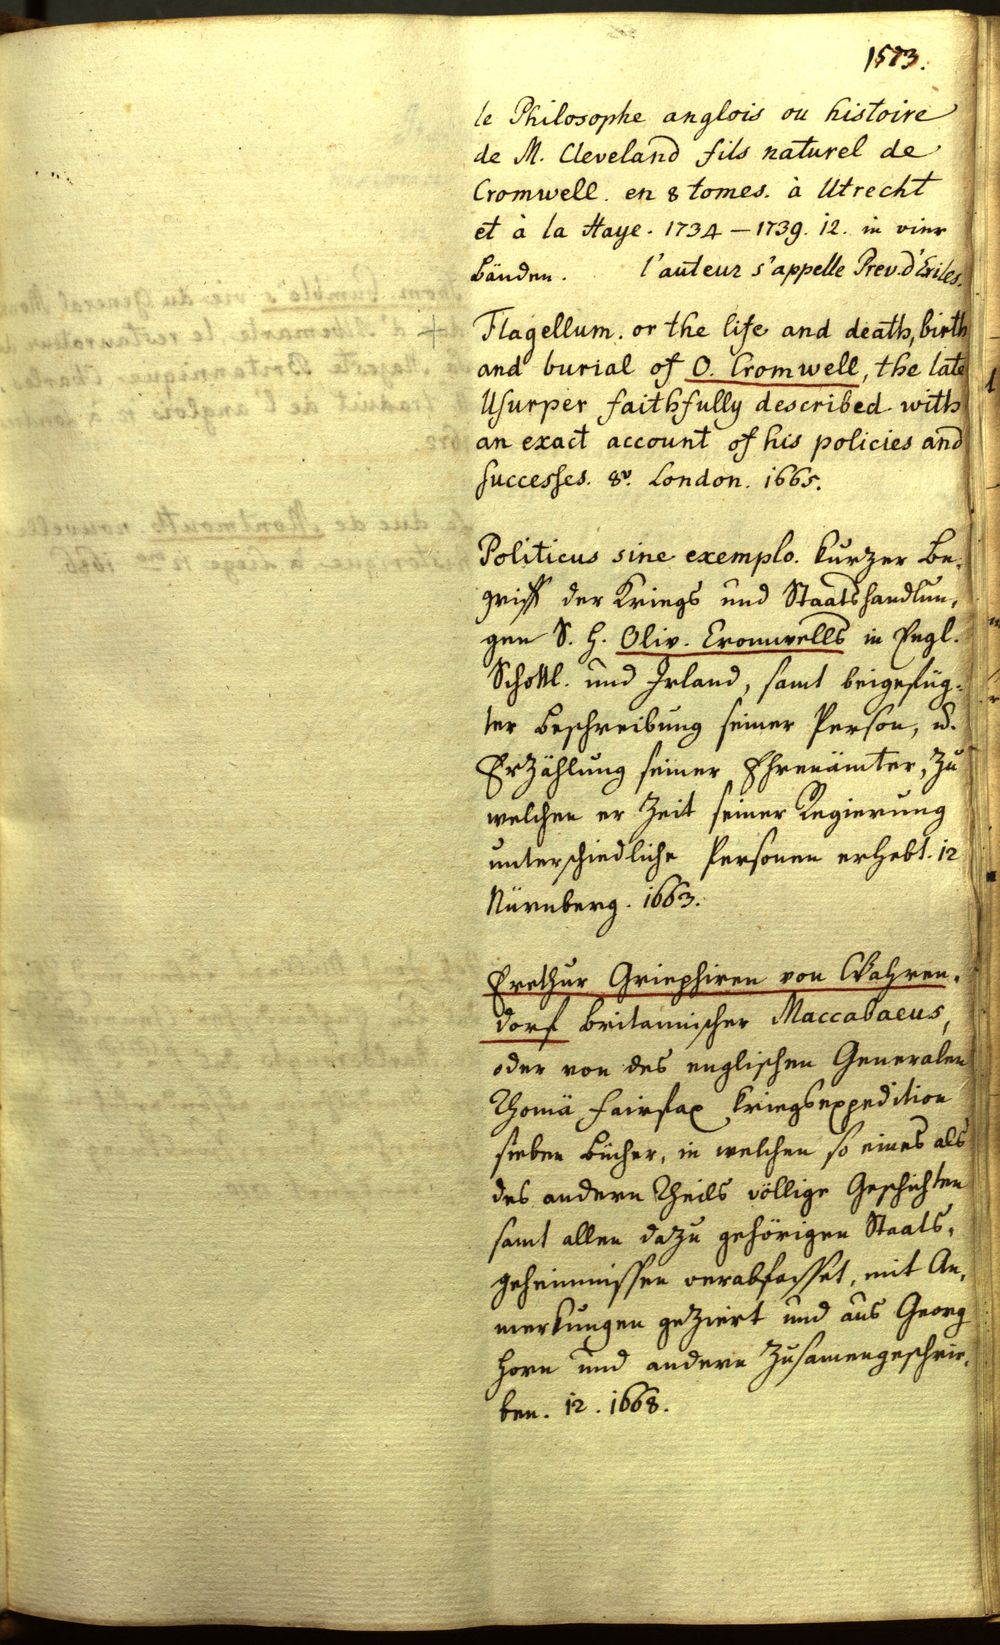 1573.
le Philosophe anglois ou histoire
de M. Cleveland fils naturel de
Cromwell. en 8 tomes. à Utrecht
et à la Haye. 1734 — 1739. 12. in vier
Bänden. l'auteur s'appelle Prev. d'Exiles.
+ Flagellum. or the life and death, birth
and burial of O. Cromwell, the late
Usurper faithfully described with
an exact account of his policies and
successes. 8º. London. 1665.
Politicus sine exemplo. Kurzer Be-
griff der Kriegs und Staatshandlun-
gen S. H. Oliv. Cromwells in Engl.
Schottl. und Irland, samt beigefüg-
ter Beschreibung seiner Person, u.
Erzählung seiner Ehrenämter, zu
welchen er Zeit seiner Regierung
unterschiedliche Personen erhebt. 12
Nürnberg. 1663.
Erethur Griephiren von Wahren-
dorf Britannischer Maccabaeus,
oder von des englischen Generalen
Thomä Fairfax Kriegsexpedition
sieben Bücher, in welchen so eines als
des andern Theils völlige Geschichten
samt allen dazu gehörigen Staats-
geheimnissen verabfasset, mit An-
merkungen geziert und aus Georg
Horn und andern zusamengeschrie-
ben. 12. 1668.